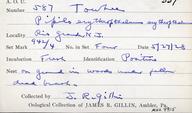 A.O.U.
No. 587 Towhee
Name Pipilo erythrophthalmus erythrophthalmus
Locality Rio Grande N.J.
Set Mark 94/4 No. in Set Four Date 5/27/28
Incubation Fresh Identification Positive
Nest on ground in woods under fallen
dead branch.
Collected by J. R. Gillin
Oological Collection of JAMES R. GILLIN, Ambler, Pa.